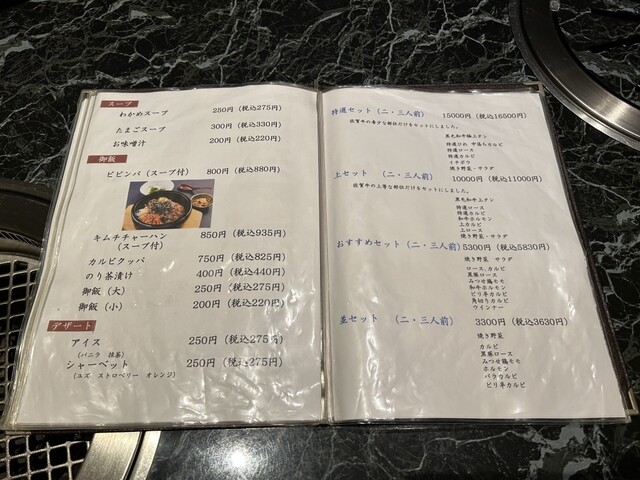 スープ
わかめスープ 250円(税込275円)
たまごスープ 300円(税込330円)
お味噌汁 200円(税込220円)
御飯
ビビンバ(スープ付) 800円(税込880円)
キムチチャーハン 850円(税込935円)
(スープ付)
カルビクッパ 750円(税込825円)
のり茶漬け 400円(税込440円)
御飯(大) 250円(税込275円)
御飯(小) 200円(税込220円)
デザート
アイス 250円(税込275円)
(バニラ 抹茶)
シャーベット 250円(税込275円)
(ユズ ストロベリー オレンジ)
特選セット(二・三人前) 15000円(税込16500円)
佐賀牛の希少な部位だけをセットにしました。
黒毛和牛極上タン
特選ひめ 中落ちカルビ
特選ロース
特選カルビ
イチボウ
焼き野菜・サラダ
上セット (二・三人前) 10000円(税込11000円)
佐賀牛の上等な部位だけをセットにしました。
黒毛和牛上タン
特選ロース
特選カルビ
和牛ホルモン
上カルビ
上ロース
焼き野菜・サラダ
おすすめセット(二・三人前) 5300円(税込5830円)
焼き野菜 サラダ
ロース、カルビ
黒豚ロース
みつせ鶏モモ
和牛ホルモン
ピリ辛カルビ
角切りカルビ
ウインナー
並セット (二・三人前) 3300円(税込3630円)
焼き野菜
カルビ
黒豚ロース
みつせ鶏モモ
ホルモン
バラカルビ
ピリ辛カルビ